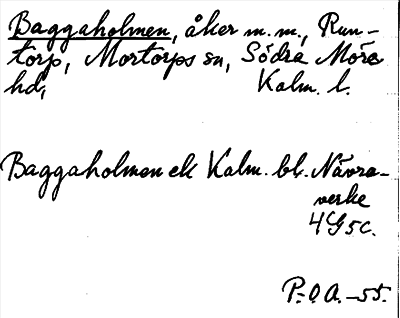 Baggaholmen, åker m.m., Run-
torp, Mortorps sn, Södra Möre
hd, Kalm. l.
Baggaholmen ek Kalm. bl. Nävra-
verke
4G5c.
P.O.A.-55.